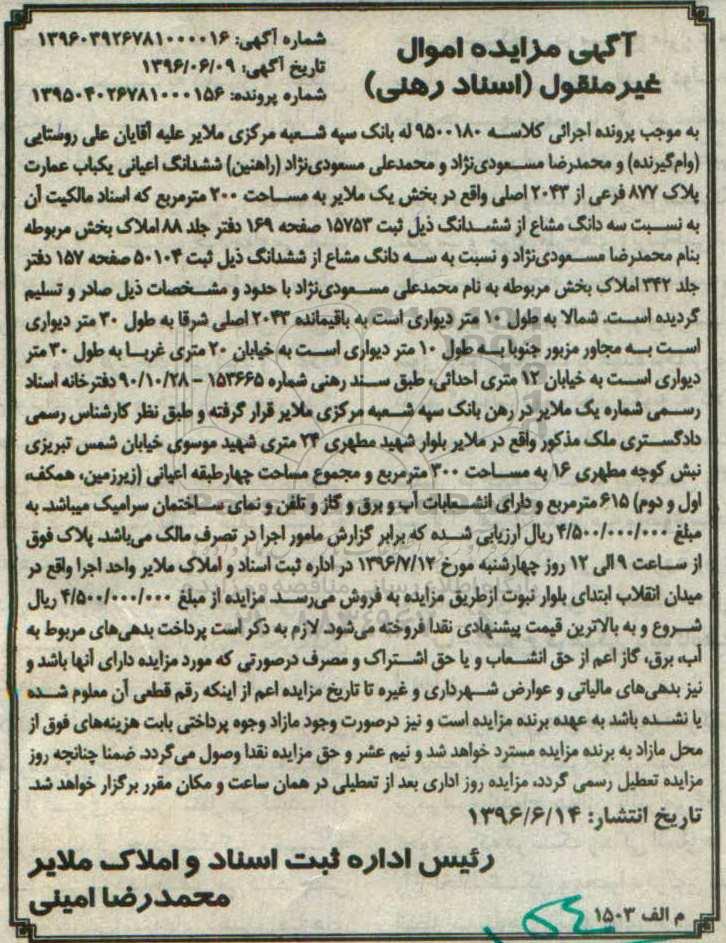 آگهی مزایده اموال
غیرمنقول (اسناد رهنی)
شماره آگهی: ۱۳۹۶۰۳۹۲۶۷۸۱۰۰۰۰۱۶
تاریخ آگهی: ۱۳۹۶/۰۶/۰۹
شماره پرونده: ۱۳۹۵۰۴۰۲۶۷۸۱۰۰۰۱۵۶
به موجب پرونده اجرائی کلاسه ۹۵۰۰۱۸۰ له بانک سپه شعبه مرکزی ملایر علیه آقایان علی روستایی
(وام‌گیرنده) و محمدرضا مسعودی‌نژاد و محمدعلی مسعودی‌نژاد (راهنین) ششدانگ اعیانی یکباب عمارت
پلاک ۸۷۷ فرعی از ۲۰۴۳ اصلی واقع در بخش یک ملایر به مساحت ۲۰۰ مترمربع که اسناد مالکیت آن
به نسبت سه دانگ مشاع از ششدانگ ذیل ثبت ۱۵۷۵۳ صفحه ۱۶۹ دفتر جلد ۸۸ املاک بخش مربوطه
بنام محمدرضا مسعودی‌نژاد و نسبت به سه دانگ مشاع از ششدانگ ذیل ثبت ۵۰۱۰۴ صفحه ۱۵۷ دفتر
جلد ۳۴۲ املاک بخش مربوطه به نام محمدعلی مسعودی‌نژاد با حدود و مشخصات ذیل صادر و تسلیم
گردیده است. شمالا به طول ۱۰ متر دیواری است به باقیمانده ۲۰۴۳ اصلی شرقا به طول ۳۰ متر دیواری
است به مجاور مزبور جنوبا به طول ۱۰ متر دیواری است به خیابان ۲۰ متری غربا به طول ۳۰ متر
دیواری است به خیابان ۱۲ متری احداثی، طبق سند رهنی شماره ۱۵۳۶۶۵ - ۹۰/۱۰/۲۸ دفترخانه اسناد
رسمی شماره یک ملایر در رهن بانک سپه شعبه مرکزی ملایر قرار گرفته و طبق نظر کارشناس رسمی
دادگستری ملک مذکور واقع در ملایر بلوار شهید مطهری ۲۴ متری شهید موسوی خیابان شمس تبریزی
نبش کوچه مطهری ۱۶ به مساحت ۳۰۰ مترمربع و مجموع مساحت چهارطبقه اعیانی (زیرزمین، همکف،
اول و دوم) ۶۱۵ مترمربع و دارای انشعابات آب و برق و گاز و تلفن و نمای ساختمان سرامیک میباشد. به
مبلغ ۴/۵۰۰/۰۰۰/۰۰۰ ریال ارزیابی شده که برابر گزارش مامور اجرا در تصرف مالک می‌باشد. پلاک فوق
از ساعت ۹ الی ۱۲ روز چهارشنبه مورخ ۱۳۹۶/۷/۱۲ در اداره ثبت اسناد و املاک ملایر واحد اجرا واقع در
میدان انقلاب ابتدای بلوار نبوت ازطریق مزایده به فروش می‌رسد. مزایده از مبلغ ۴/۵۰۰/۰۰۰/۰۰۰ ریال
شروع و به بالاترین قیمت پیشنهادی نقدا فروخته می‌شود. لازم به ذکر است پرداخت بدهی‌های مربوط به
آب، برق، گاز اعم از حق انشعاب و یا حق اشتراک و مصرف درصورتی که مورد مزایده دارای آنها باشد و
نیز بدهی‌های مالیاتی و عوارض شهرداری و غیره تا تاریخ مزایده اعم از اینکه رقم قطعی آن معلوم شده
یا نشده باشد به عهده برنده مزایده است و نیز درصورت وجود مازاد وجوه پرداختی بابت هزینه‌های فوق از
محل مازاد به برنده مزایده مسترد خواهد شد و نیم عشر و حق مزایده نقدا وصول می‌گردد. ضمنا چنانچه روز
مزایده تعطیل رسمی گردد، مزایده روز اداری بعد از تعطیلی در همان ساعت و مکان مقرر برگزار خواهد شد.
تاریخ انتشار: ۱۳۹۶/۶/۱۴
رئیس اداره ثبت اسناد و املاک ملایر
محمدرضا امینی
م الف ۱۵۰۳